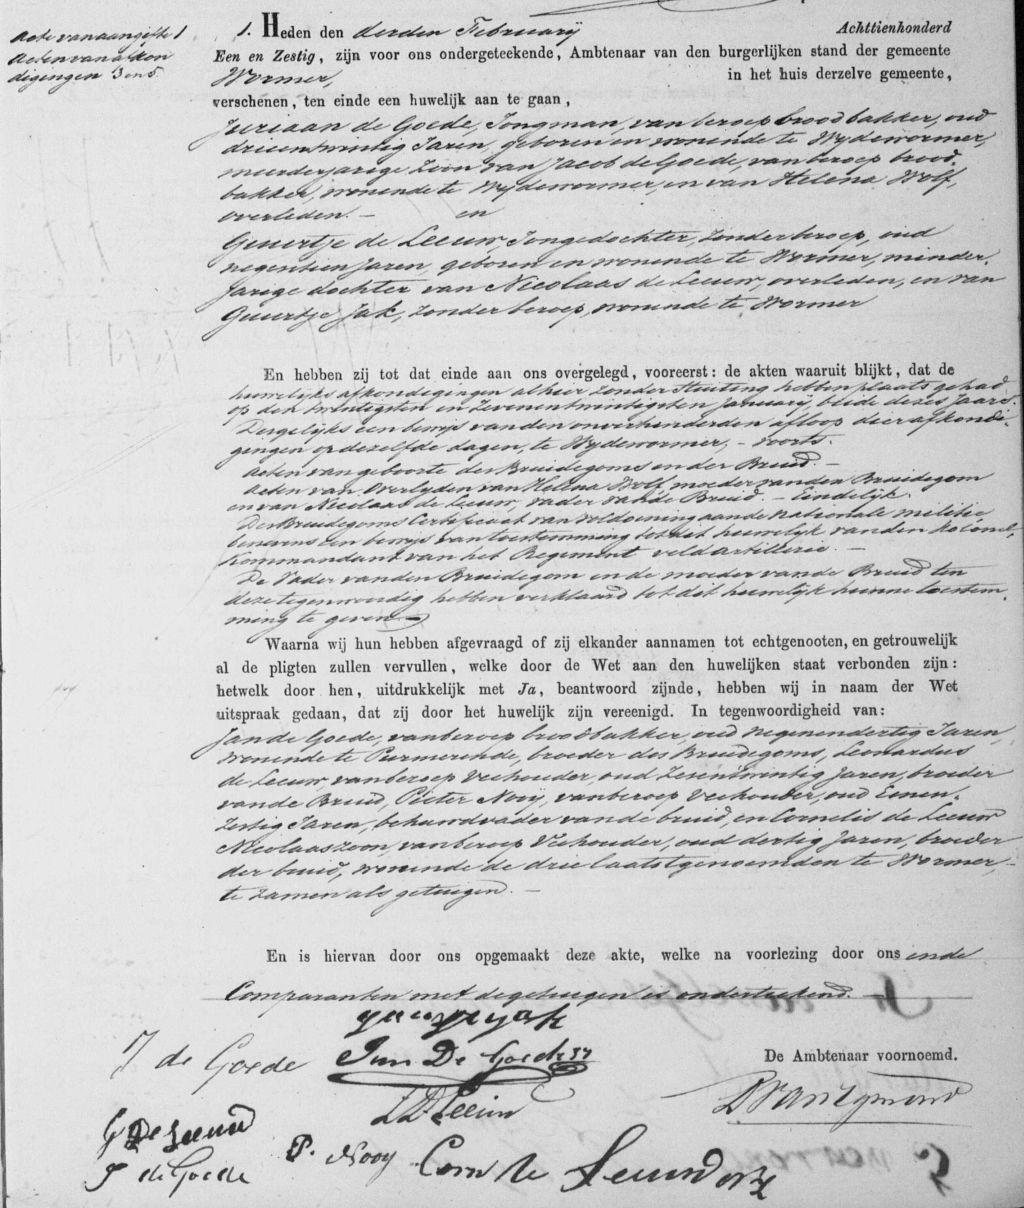 Acte van aangifte 1
Acten van afkon
digingen 3 en 5.
1. Heden den derden Februarij Achttienhonderd
Een en Zestig, zijn voor ons ondergeteekende, Ambtenaar van den burgerlijken stand der gemeente
Wormer, in het huis derzelve gemeente,
verschenen, ten einde een huwelijk aan te gaan,
Juriaan de Goede, Jongman, van beroep broodbakker, oud
drieentwintig Jaren, geboren en wonende te Wydewormer,
meerderjarige Zoon van Jacob de Goede, van beroep brood-
bakker, wonende te Wydewormer, en van Helena Wolf,
overleden. — en
Geuertje de Leeuw Jongedochter, zonder beroep, oud
negentien Jaren, geboren en wonende te Wormer, minder-
Jarige dochter van Nicolaas de Leeuw, overleden, en van
Geuertje Jak, zonder beroep, wonende te Wormer
En hebben zij tot dat einde aan ons overgelegd, vooreerst: de akten waaruit blijkt, dat de
huwelijks afkondigingen alhier zonder stuiting hebben plaats gehad
op den twintigsten en Zevenentwintigsten January, beide dezes Jaars.
Dergelijks een bewijs van den onverhinderden afloop dier afkondi-
gingen op dezelfde dagen, te Wydewormer, — voorts.
Acten van geboorte des Bruidegoms en der Bruid. —
Acten van Overlyden van Helena Wolf, moeder van den Bruidegom
en van Nicolaas de Leeuw, vader van de Bruid. — Eindelijk.
Des Bruidegoms Certificaat van voldoening aan de Nationale Militie
benevens een bewijs van toestemming tot dit huwelijk van den Kolonel,
Kommandant van het Regiment veldartillerie. —
De Vader van den Bruidegom en de moeder van de Bruid ten
deze tegenwoordig hebben verklaard tot dit huwelijk hunne toestem-
ming te geven. —
Waarna wij hun hebben afgevraagd of zij elkander aannamen tot echtgenooten, en getrouwelijk
al de pligten zullen vervullen, welke door de Wet aan den huwelijken staat verbonden zijn:
hetwelk door hen, uitdrukkelijk met Ja, beantwoord zijnde, hebben wij in naam der Wet
uitspraak gedaan, dat zij door het huwelijk zijn vereenigd. In tegenwoordigheid van:
Jan de Goede, van beroep broodbakker, oud Negenendertig Jaren,
wonende te Purmerende, broeder des Bruidegoms, Leonardus
de Leeuw, van beroep Veehouder, oud Zesentwintig Jaren, broeder
van de Bruid, Pieter Nooy, van beroep Veehouder, oud Eenen-
Zestig Jaren, behuwdvader van de bruid, en Cornelis de Leeuw
Nicolaaszoon, van beroep Veehouder, oud dertig Jaren, broeder
der bruid, wonende de drie laatstgenoemden te Wormer,
te zamen als getuigen. —
En is hiervan door ons opgemaakt deze akte, welke na voorlezing door ons en de
Comparanten met de getuigen is onderteekend. —
J de Goede Jan De Goede De Ambtenaar voornoemd.
L D Leeuw
G De Leeuw
J de Goede P. Nooy Corn de Leeuw